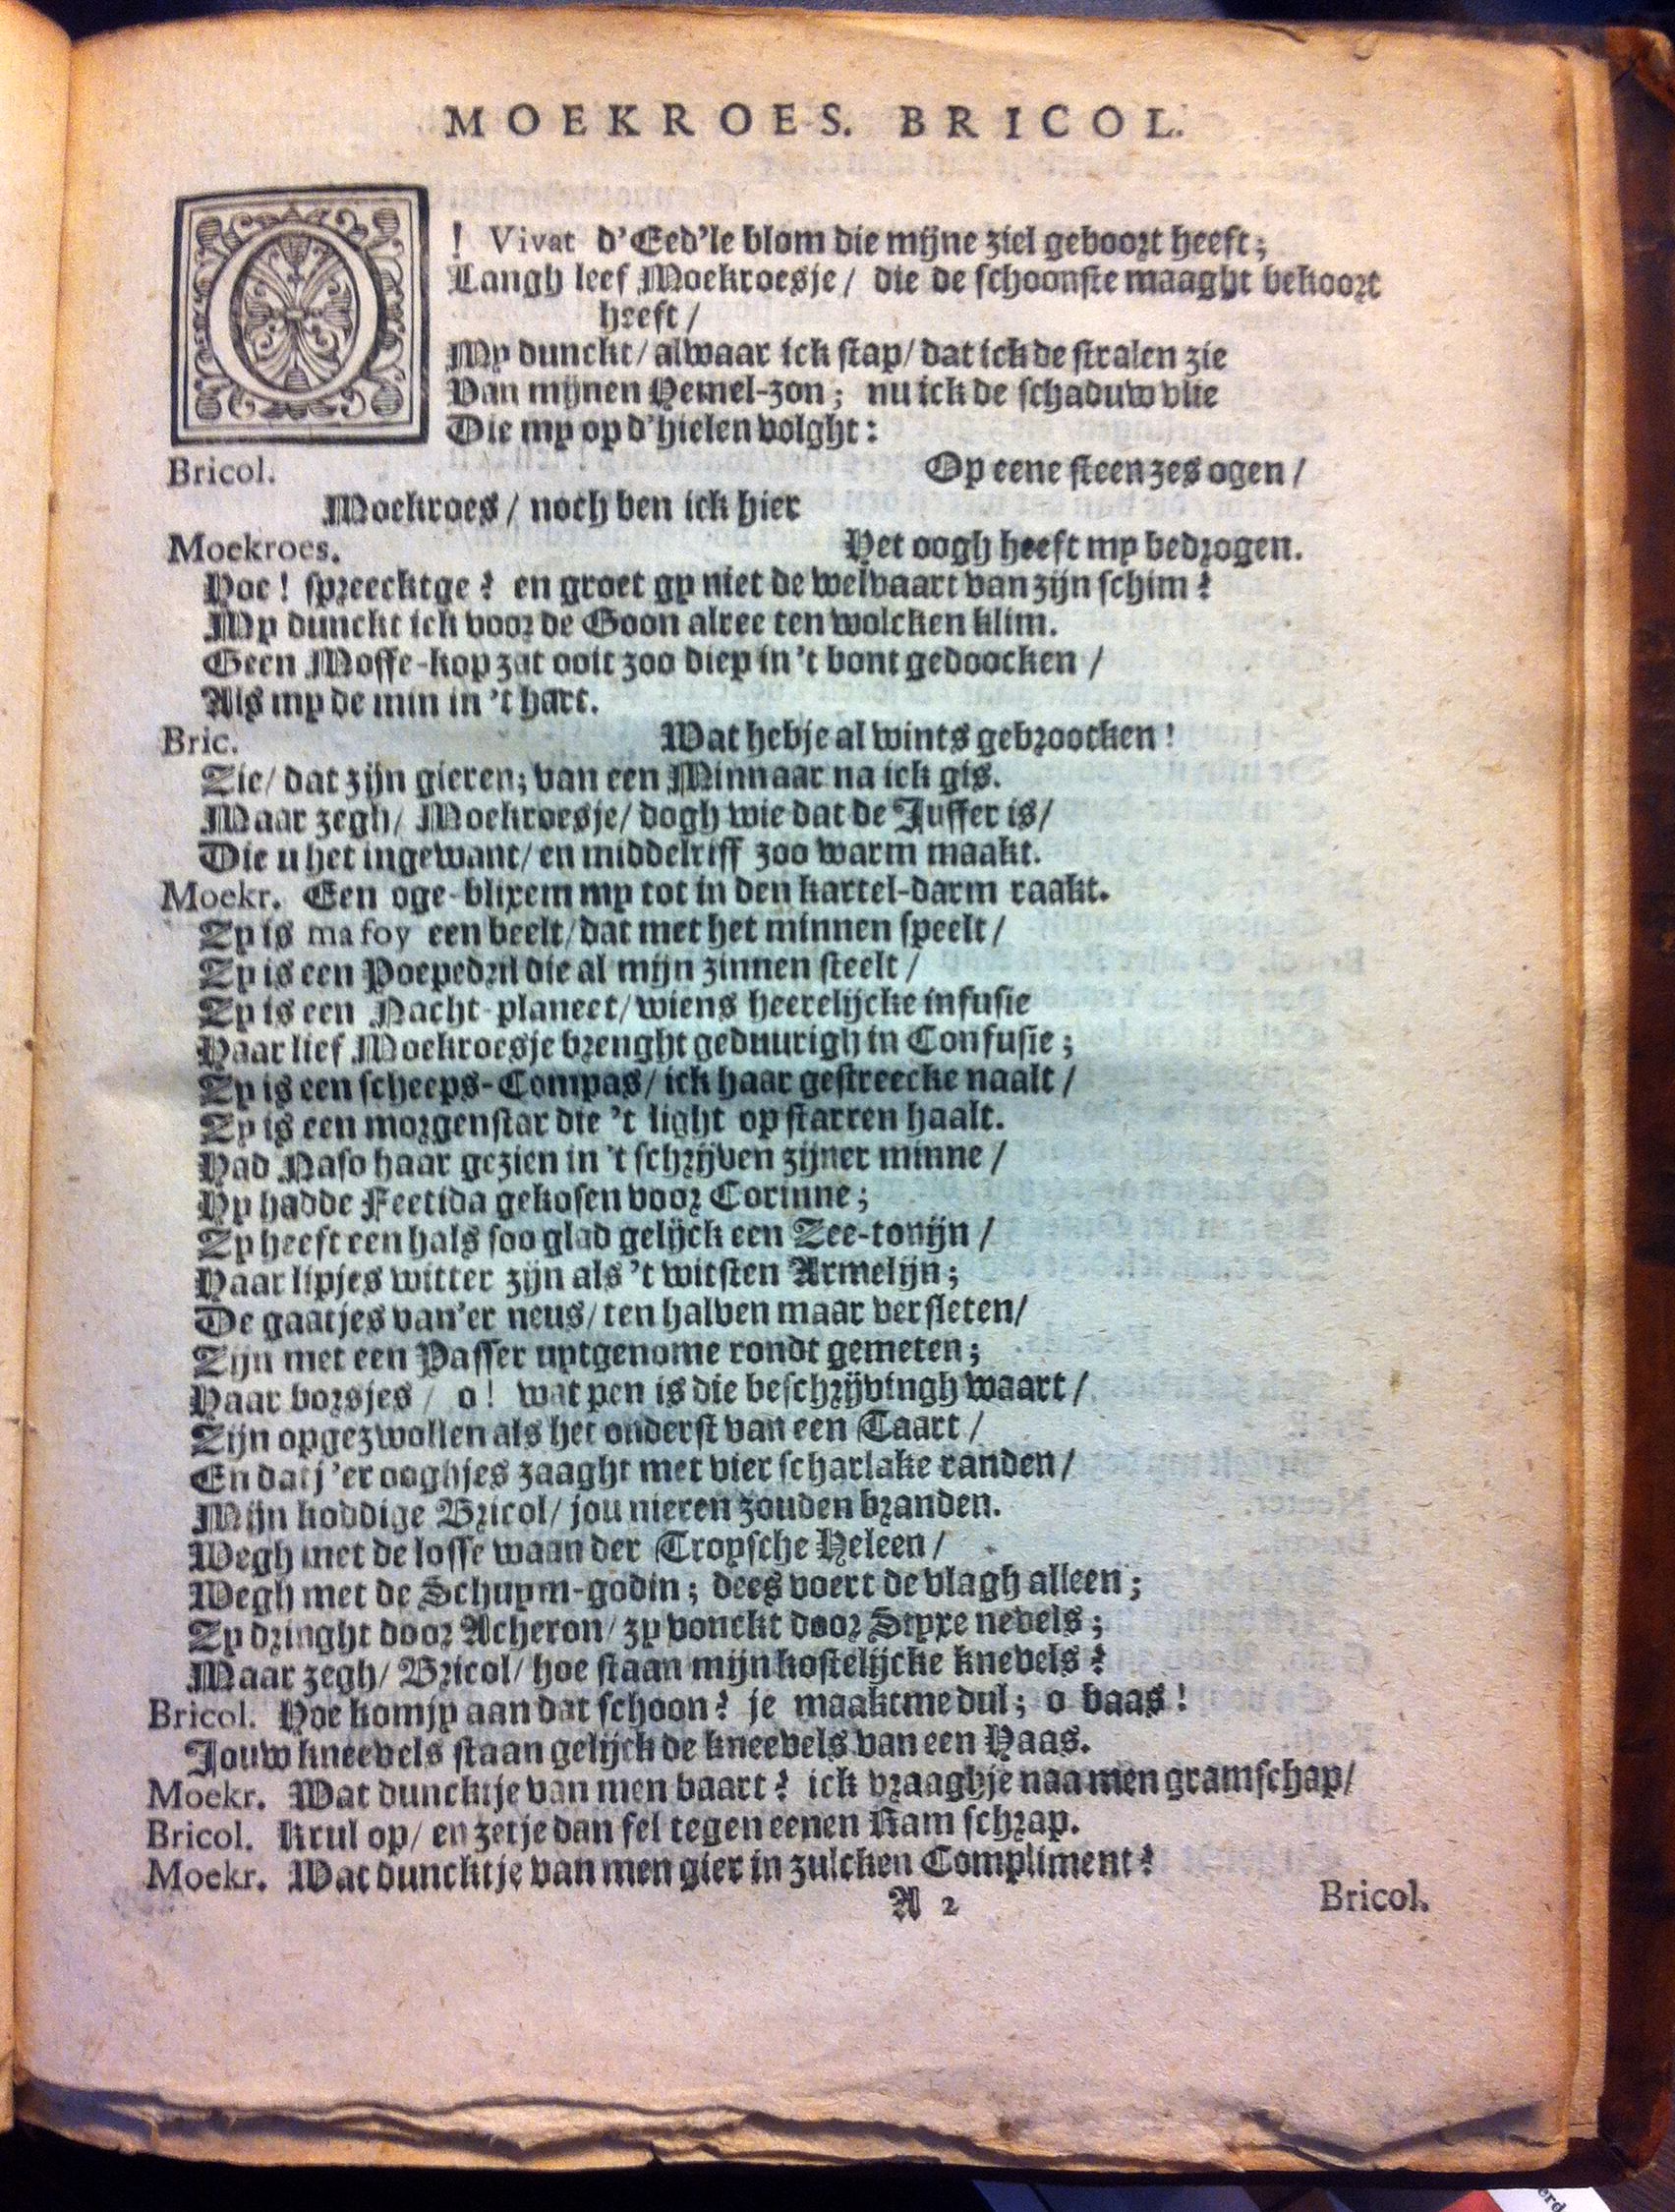 MOEKROES. BRICOL.
O! Vivat d'Eed'le blom die mijne ziel geboort heeft;
Langh leef Moekroesje / die de schoonste maaght bekoort
heeft /
My dunckt / alwaar ick stap / dat ick de stralen zie
Van mijnen Hemel-zon; nu ick de schaduw vlie
Die my op d'hielen volght:
Bricol. Op eene steen zes ogen /
Moekroes / noch ben ick hier
Moekroes. Het oogh heeft my bedrogen.
Hoe! spreecktge? en groet gy niet de welvaart van zijn schim?
My dunckt ick voor de Goon alree ten wolcken klim.
Geen Moffe-kop zat ooit zoo diep in 't bont gedoocken /
Als my de min in 't hart.
Bric. Wat hebje al wints gebroocken!
Zie / dat zijn gieren; van een Minnaar na ick gis.
Maar zegh / Moekroesje / dogh wie dat de Juffer is /
Die u het ingewant / en middelriff zoo warm maakt.
Moekr. Een oge-blixem my tot in den kartel-darm raakt.
Zy is ma foy een beelt / dat met het minnen speelt /
Zy is een Poepedril die al mijn zinnen steelt /
Zy is een Nacht-planeet / wiens heerelijcke infusie
Haar lief Moekroesje brenght geduurigh in Confusie;
Zy is een scheeps-Compas / ick haar gestreecke naalt /
Zy is een morgenstar die 't light op starren haalt.
Had Naso haar gezien in 't schrijven zijner minne /
Hy hadde Feetida gekosen voor Corinne;
Zy heeft een hals soo glad gelijck een Zee-tonijn /
Haar lipjes witter zijn als 't witsten Armelijn;
De gaatjes van'er neus / ten halven maar versleten /
Zijn met een Passer uytgenome rondt gemeten;
Haar borsjes / o! wat pen is die beschrijvingh waart /
Zijn opgezwollen als het onderst van een Taart /
En datj'er ooghjes zaaght met vier scharlake randen /
Mijn koddige Bricol / jou nieren zouden branden.
Wegh met de losse waan der Troysche Heleen /
Wegh met de Schuym-godin; dees voert de vlagh alleen;
Zy dringht door Acheron / zy vonckt door Styxe nevels;
Maar zegh / Bricol / hoe staan mijn kostelijcke knevels?
Bricol. Hoe komjy aan dat schoon? je maaktme dul; o baas!
Jouw kneevels staan gelijck de kneevels van een Haas.
Moekr. Wat duncktje van men baart? ick vraaghje naa men gramschap /
Bricol. Krul op / en zetje dan fel tegen eenen Ram schrap.
Moekr. Wat duncktje van men gier in zulcken Compliment?
A 2 Bricol.